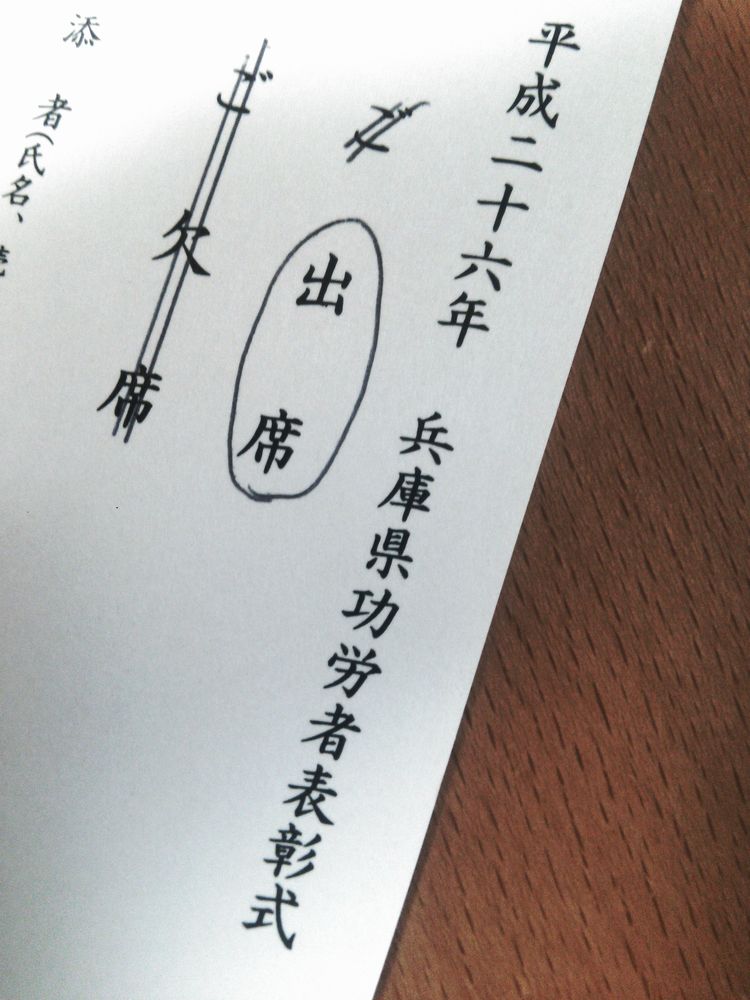 平成二十六年 兵庫県功労者表彰式
ご出席
ご欠席
添 者(氏名、続